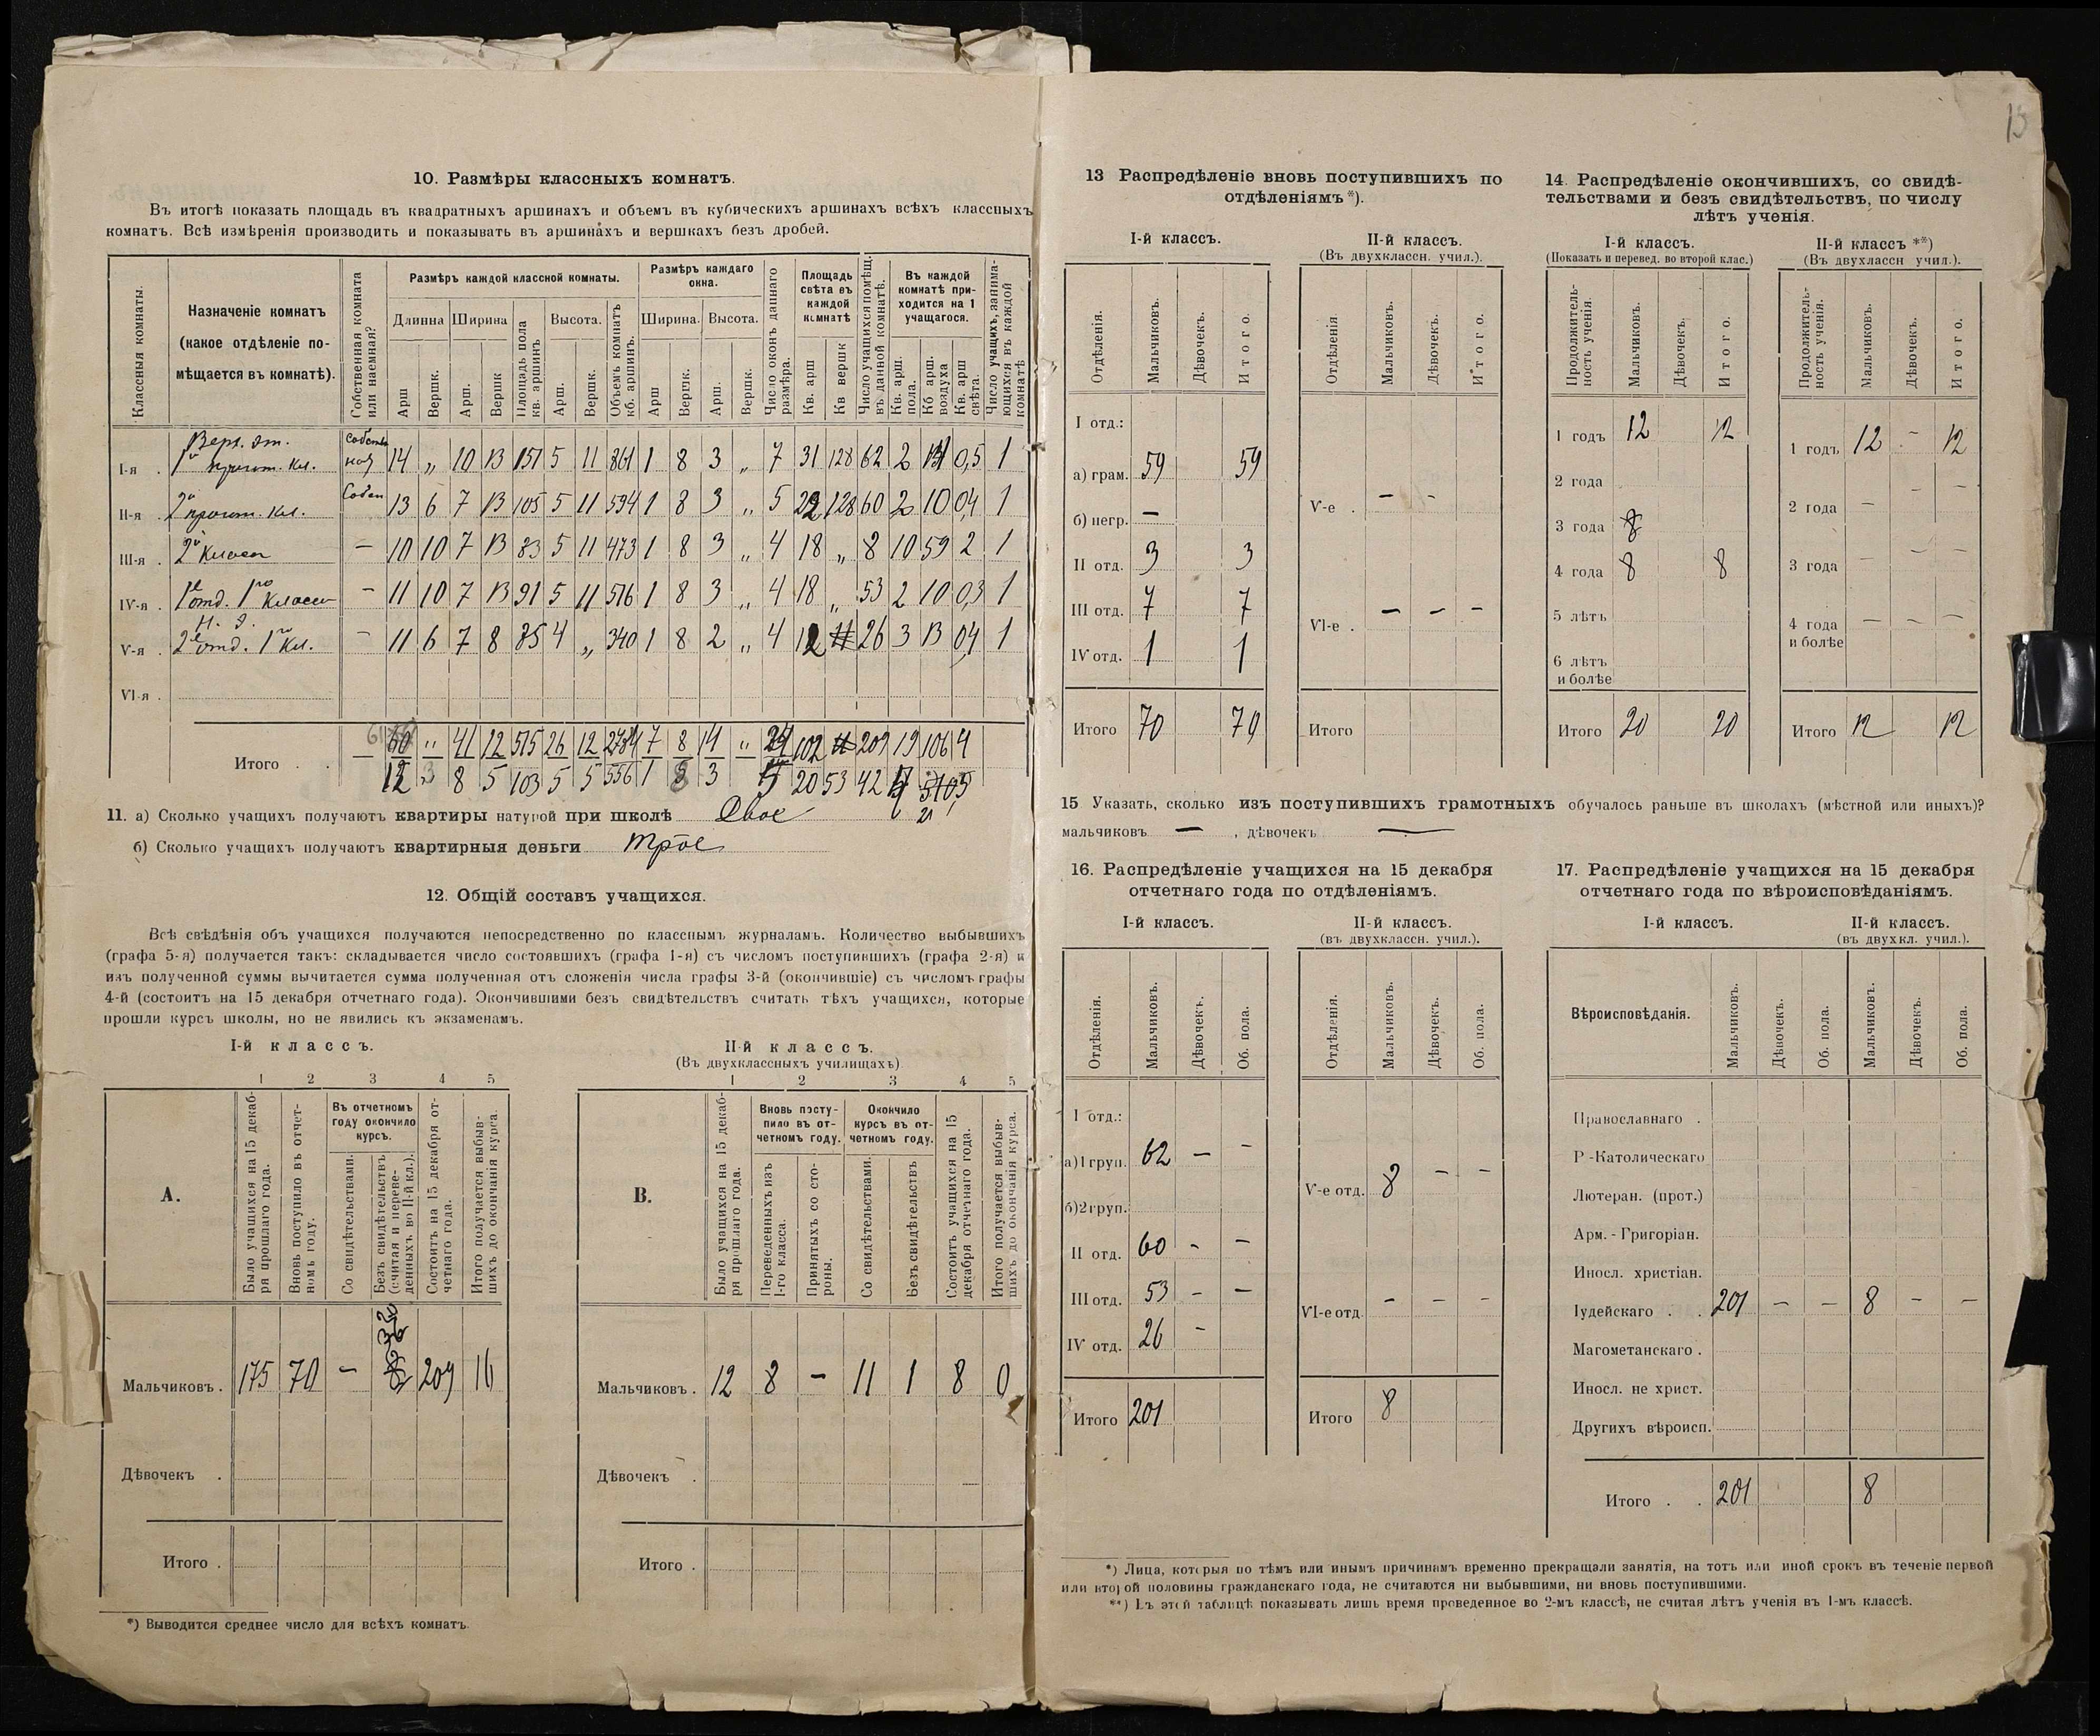 13
10. Размѣры классныхъ комнатъ.
Въ итогѣ показать площадь въ квадратныхъ аршинахъ и объемъ въ кубическихъ аршинахъ всѣхъ классныхъ
комнатъ. Всѣ измѣренія производить и показывать въ аршинахъ и вершкахъ безъ дробей.
Классныя комнаты.
Назначеніе комнатъ
(какое отдѣленіе по-
мѣщается въ комнатѣ).
Собственная комната
или наемная?
Размѣръ каждой классной комнаты.
Длинна Ширина Площадь пола кв. аршинъ Высота. Объемъ комнатъ кб. аршинъ.
Размѣръ каждаго окна.
Ширина. Высота.
Число оконъ даннаго размѣра.
Площадь свѣта въ каждой комнатѣ
Число учащихся помѣщ. въ данной комнатѣ.
Въ каждой комнатѣ приходится на 1 учащагося.
Число учащихъ, занимающихся въ каждой комнатѣ
Арш Вершк. Арш. Вершк Арш. Вершк. Арш Вершк. Арш. Вершк. Кв. арш Кв вершк Кв. арш. пола. Кб арш. воздуха Кв. арш свѣта.
I-я . 14 „ 10 13 151 5 11 861 1 8 3 „ 7 31 128 62 2 0,5 1
II-я . 13 6 7 13 105 5 11 594 1 8 3 „ 5 128 60 2 10 04 1
III-я . 2й Классъ — 10 10 7 13 83 5 11 473 1 8 3 „ 4 18 „ 8 10 59 2 1
IV-я . 1е отд. 1го Класса — 11 10 7 13 91 5 11 516 1 8 3 „ 4 18 „ 53 2 10 0,3 1
V-я . 2е отд. 1го Кл. — 11 6 7 8 85 4 „ 340 1 8 2 „ 4 12 26 3 13 04 1
VI-я .
Итого . . — 60 „ 41 12 515 26 12 2784 7 8 14 „ 24 102 209 19 106 4
12 3 8 5 103 5 5 556 1 8 3 20 53 42
11. а) Сколько учащихъ получаютъ квартиры натурой при школѣ Двое
б) Сколько учащихъ получаютъ квартирныя деньги трое
12. Общій составъ учащихся.
Всѣ свѣдѣнія объ учащихся получаются непосредственно по класснымъ журналамъ. Количество выбывшихъ
(графа 5-я) получается такъ: складывается число состоявшихъ (графа 1-я) съ числомъ поступившихъ (графа 2-я) и
изъ полученной суммы вычитается сумма полученная отъ сложенія числа графы 3-й (окончившіе) съ числомъ графы
4-й (состоитъ на 15 декабря отчетнаго года). Окончившими безъ свидѣтельствъ считать тѣхъ учащихся, которые
прошли курсъ школы, но не явились къ экзаменамъ.
I-й классъ.
1 2 3 4 5
А.
Было учащихся на 15 декаб-
ря прошлаго года.
Вновь поступило въ отчет-
номъ году.
Въ отчетномъ
году окончило
курсъ.
Со свидѣтельствами.
Безъ свидѣтельствъ
(считая и переве-
денныхъ во II-й кл.).
Состоитъ на 15 декабря от-
четнаго года.
Итого получается выбыв-
шихъ до окончанія курса.
Мальчиковъ . 175 70 — 209 16
Дѣвочекъ .
Итого .
II-й классъ.
(Въ двухклассныхъ училищахъ)
1 2 3 4 5
В.
Было учащихся на 15 декаб-
ря прошлаго года.
Вновь посту-
пило въ от-
четномъ году.
Переведенныхъ изъ
1-го класса.
Принятыхъ со сто-
роны.
Окончило
курсъ въ от-
четномъ году.
Со свидѣтельствами.
Безъ свидѣтельствъ
Состоитъ учащихся на 15
декабря отчетнаго года.
Итого получается выбыв-
шихъ до окончанія курса.
Мальчиковъ . 12 8 — 11 1 8 0
Дѣвочекъ .
Итого .
*) Выводится среднее число для всѣхъ комнатъ.
13 Распредѣленіе вновь поступившихъ по
отдѣленіямъ *).
I-й классъ.
Отдѣленія. Мальчиковъ. Дѣвочекъ. Итого.
I отд.:
а) грам. 59 59
б) негр. —
II отд. 3 3
III отд. 7 7
IV отд. 1 1
Итого 70 70
II-й классъ.
(Въ двухклассн. учил.).
Отдѣленія Мальчиковъ. Дѣвочекъ. Итого.
V-е . — -
VI-е . — — —
Итого
14. Распредѣленіе окончившихъ, со свидѣ-
тельствами и безъ свидѣтельствъ, по числу
лѣтъ ученія.
I-й классъ.
(Показать и перевед. во второй клас.)
Продолжитель-
ность ученія. Мальчиковъ. Дѣвочекъ. Итого.
1 годъ 12 12
2 года
3 года 8
4 года 8 8
5 лѣтъ
6 лѣтъ
и болѣе
Итого 20 20
II-й классъ **)
(Въ двухлассн учил.).
Продолжитель-
ность ученія. Мальчиковъ. Дѣвочекъ. Итого.
1 годъ 12 — 12
2 года — — —
3 года — — —
4 года — — —
и болѣе
Итого 12 12
15 Указать, сколько изъ поступившихъ грамотныхъ обучалось раньше въ школахъ (мѣстной или иныхъ)?
мальчиковъ — , дѣвочекъ —
16. Распредѣленіе учащихся на 15 декабря
отчетнаго года по отдѣленіямъ.
I-й классъ.
Отдѣленія. Мальчиковъ. Дѣвочекъ. Об. пола.
I отд.:
а) 1 груп. 62 — —
б) 2 груп.
II отд. 60 - —
III отд. 53 - —
IV отд. 26 -
Итого 201
II-й классъ.
(въ двухклассн. учил.).
Отдѣленія. Мальчиковъ. Дѣвочекъ. Об. пола.
V-е отд. 8 - -
VI-е отд. - - -
Итого 8
17. Распредѣленіе учащихся на 15 декабря
отчетнаго года по вѣроисповѣданіямъ.
I-й классъ. II-й классъ.
(въ двухкл. учил.).
Вѣроисповѣданія. Мальчиковъ. Дѣвочекъ. Об. пола. Мальчиковъ. Дѣвочекъ. Об. пола.
Православнаго .
Р -Католическаго
Лютеран. (прот.)
Арм. - Григоріан.
Иносл. христіан.
Іудейскаго . . 201 — — 8 — —
Магометанскаго .
Иносл. не христ.
Другихъ вѣроисп.
Итого . . 201 8
*) Лица, которыя по тѣмъ или инымъ причинамъ временно прекращали занятія, на тотъ или иной срокъ въ теченіе первой
или второй половины гражданскаго года, не считаются ни выбывшими, ни вновь поступившими.
**) Въ этой таблицѣ показывать лишь время проведенное во 2-мъ классѣ, не считая лѣтъ ученія въ 1-мъ классѣ.